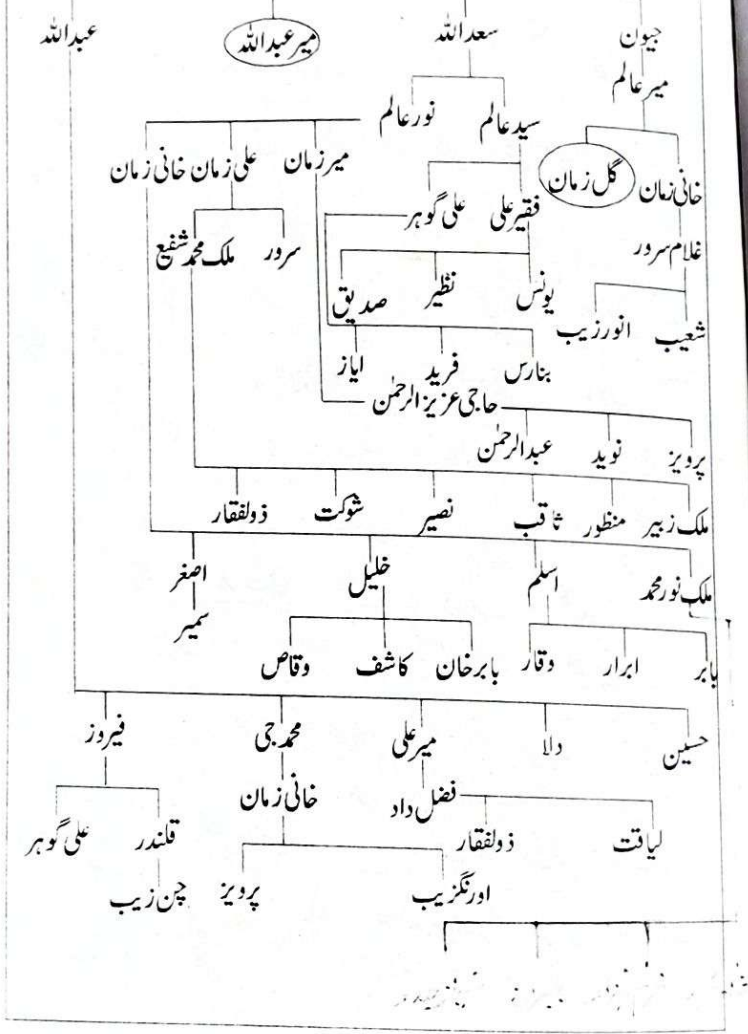 جیون سعد اللہ میر عبد اللہ عبد اللہ
میر عالم
سید عالم نور عالم
خانی زمان گل زمان میر زمان علی زمان خانی زمان
فقیر علی علی گوہر
غلام سرور سرور ملک محمد شفیع
یونس نظیر صدیق
شعیب انور زیب
بنارس فرید ایاز
حاجی عزیز الرحمٰن
پرویز نوید عبد الرحمٰن
ملک زبیر منظور ثاقب نصیر شوکت ذولفقار
ملک نور محمد اسلم خلیل اصغر
سمیر
بابر ابرار وقار بابر خان کاشف وقاص
حسین دلا میر علی محمد جی فیروز
فضل داد خانی زمان
لیاقت ذولفقار قلندر علی گوہر
اورنگزیب پرویز چن زیب